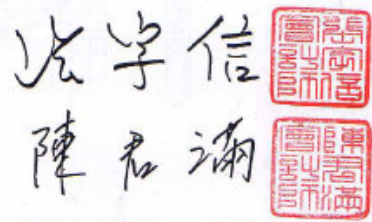 張字信
張字信會計師
陳君滿
陳君滿會計師